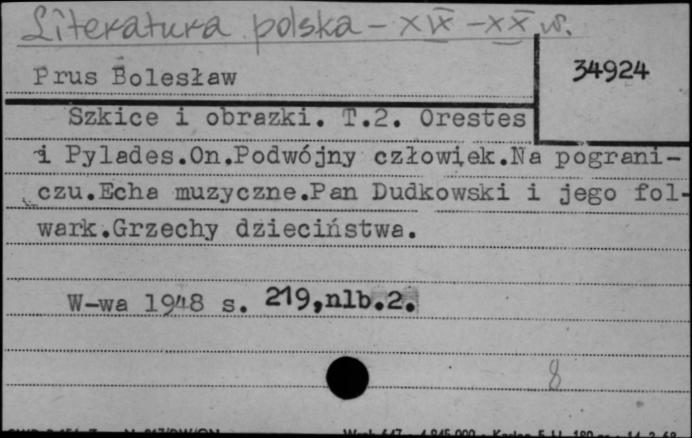 Literatura polska - XIX - XX w.
Prus Bolesław
34924
Szkice i obrazki. T.2. Orestes
i Pylades.On.Podwójny człowiek.Na pograni-
czu.Echa muzyczne.Pan Dudkowski i jego fol-
wark.Grzechy dzieciństwa.
W-wa 1948 s. 219,nlb.2.
8